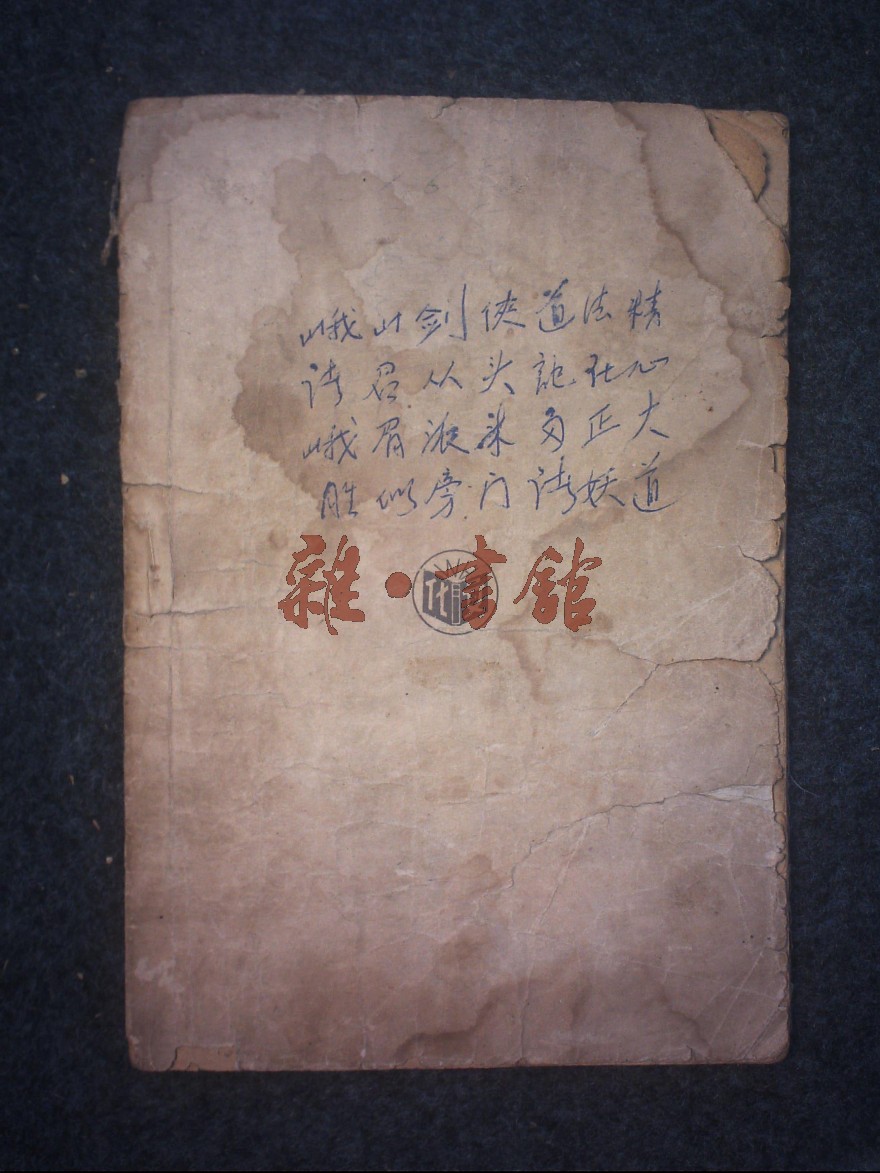 峨山剑侠道法精
请君从头記在心
峨眉派来多正大
胜似旁门诸妖道
雜·書館